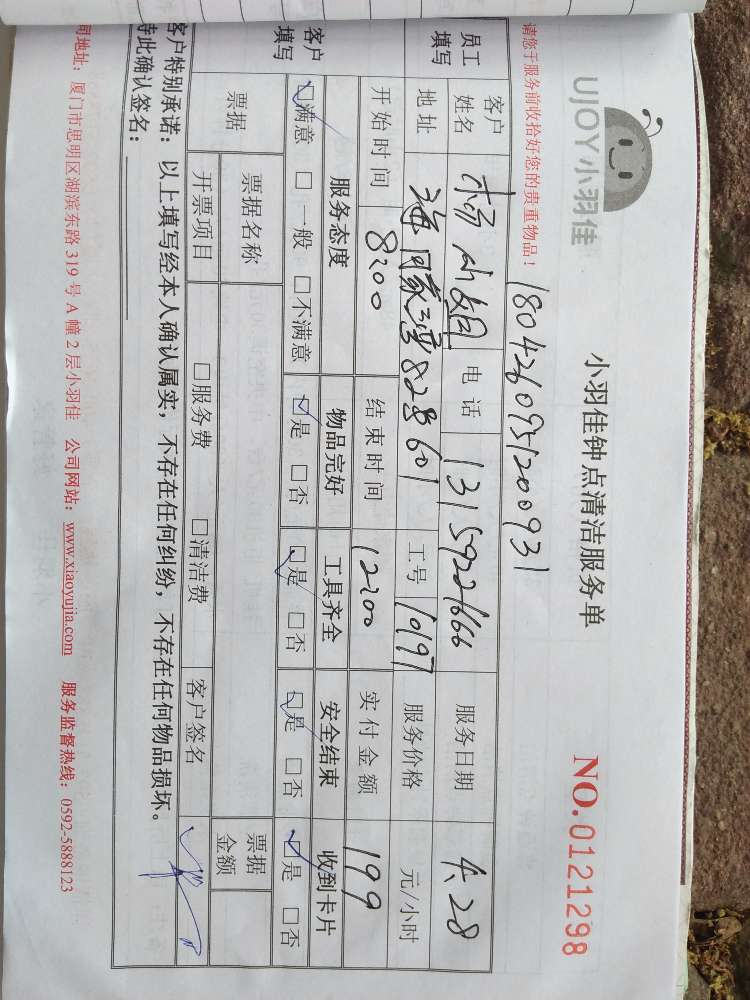 UJOY小羽佳
小羽佳钟点清洁服务单
NO.0121298
请您于服务前收拾好您的贵重物品!
1804260951200931
员工填写 客户姓名 杨小姐 电话 13159221666 服务日期 4.28
地址 海同豪湾82#601 工号 10197 服务价格 元/小时
开始时间 8:00 结束时间 12:00 实付金额 199
客户填写 服务态度 物品完好 工具齐全 安全结束 收到卡片
☑满意 □一般 □不满意 ☑是 □否 ☑是 □否 ☑是 □否 ☑是 □否
票据 票据名称 票据金额
开票项目 □服务费 □清洁费 客户签名
客户特别承诺:以上填写经本人确认属实,不存在任何纠纷,不存在任何物品损坏。
特此确认签名:
司地址:厦门市思明区湖滨东路319号A幢2层小羽佳 公司网站:www.xiaoyujia.com 服务监督热线:0592-5888123